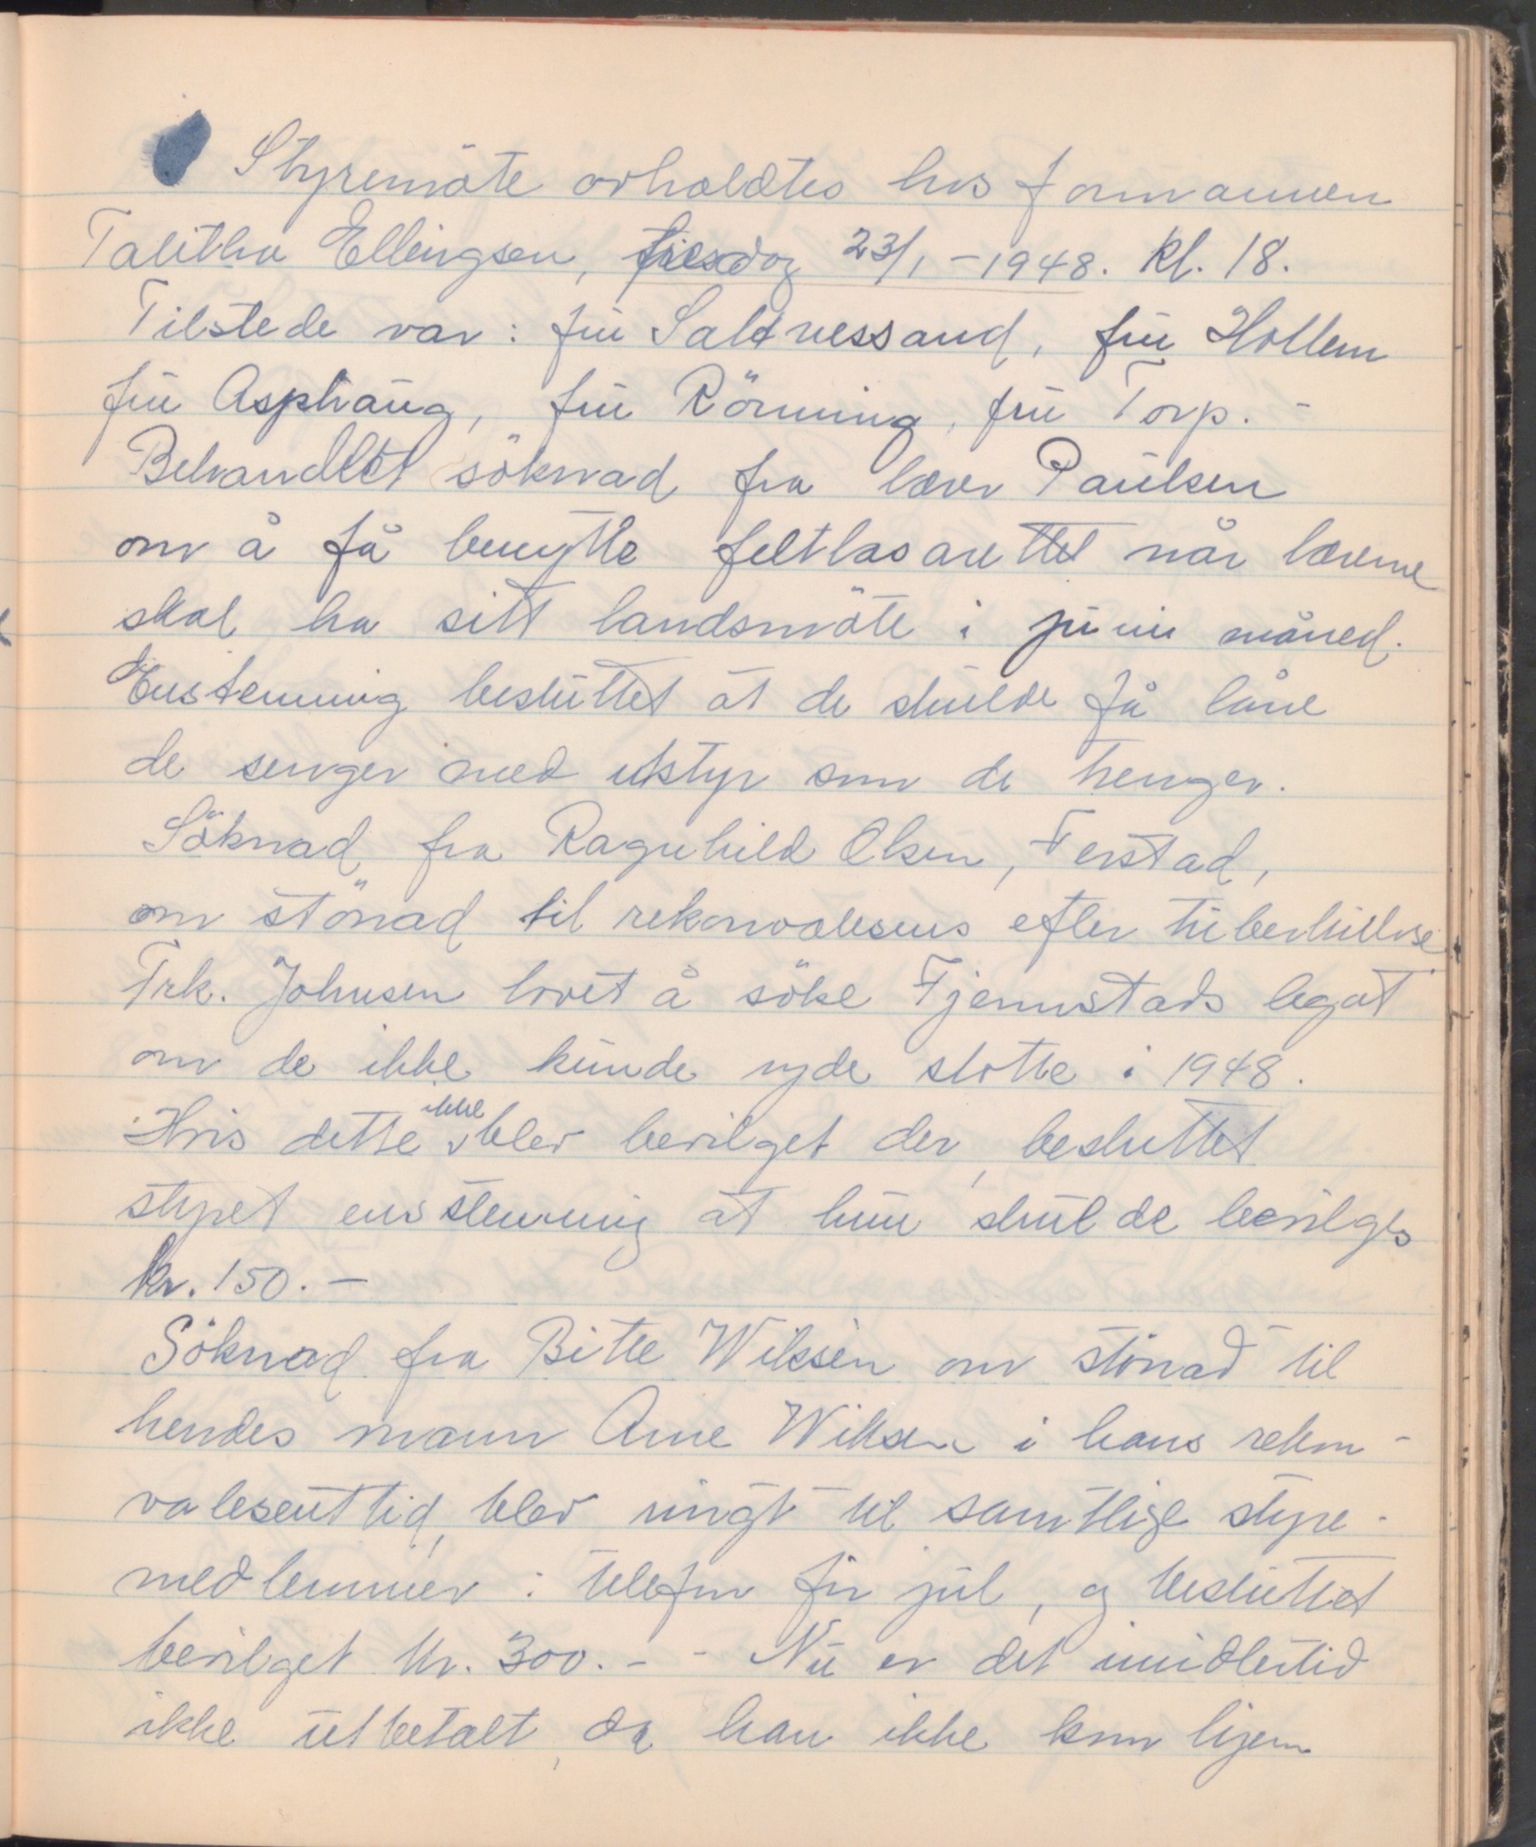 Styremöte avholdtes hos formannen
Talitha Ellingsen, fredag 23/1 - 1948. kl. 18.
Tilstede var: fru Saltnessand, fru Hollem
fru Asphaug, fru Rönning, fru Torp. -
Behandlet söknad fra lærer Paulsen
om å få benytte feltlasarettet når lærerne
skal ha sitt landsmöte i juni måned.
Enstemmig besluttet at de skulde få låne
de senger med utstyr som de trenger.
Söknad fra Ragnhild Olsen, Ferstad,
om stönad til rekonvalesens efter tuberkulose.
Frk. Johnsen lovet å söke Fjermstads legat
om de ikke kunde yde stotte i 1948.
Hvis dette ikke blev bevilget der, besluttet
styret enstemmig at hun skulde bevilges
kr. 150. -
Söknad fra Bitte Wiksen om stönad til
hendes mann Arne Wiksen i hans rekon-
valesenttid, blev ringt til samtlige styre-
medlemmer i telefon för jul, og besluttet
bevilget kr. 300. - - Nu er det imidlertid
ikke utbetalt, da han ikke kom hjem